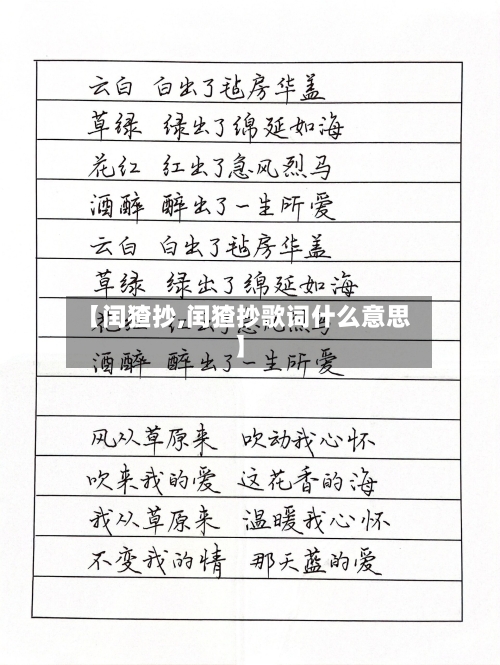 云白 白出了毡房华盖
草绿 绿出了绵延如海
花红 红出了急风烈马
酒醉 醉出了一生所爱
云白 白出了毡房华盖
草绿 绿出了绵延如海
【闰獇抄,闰獇抄歌词什么意思
】
花红 红出了急风烈马
酒醉 醉出了一生所爱
风从草原来 吹动我心怀
吹来我的爱 这花香的海
我从草原来 温暖我心怀
不变我的情 那天蓝的爱